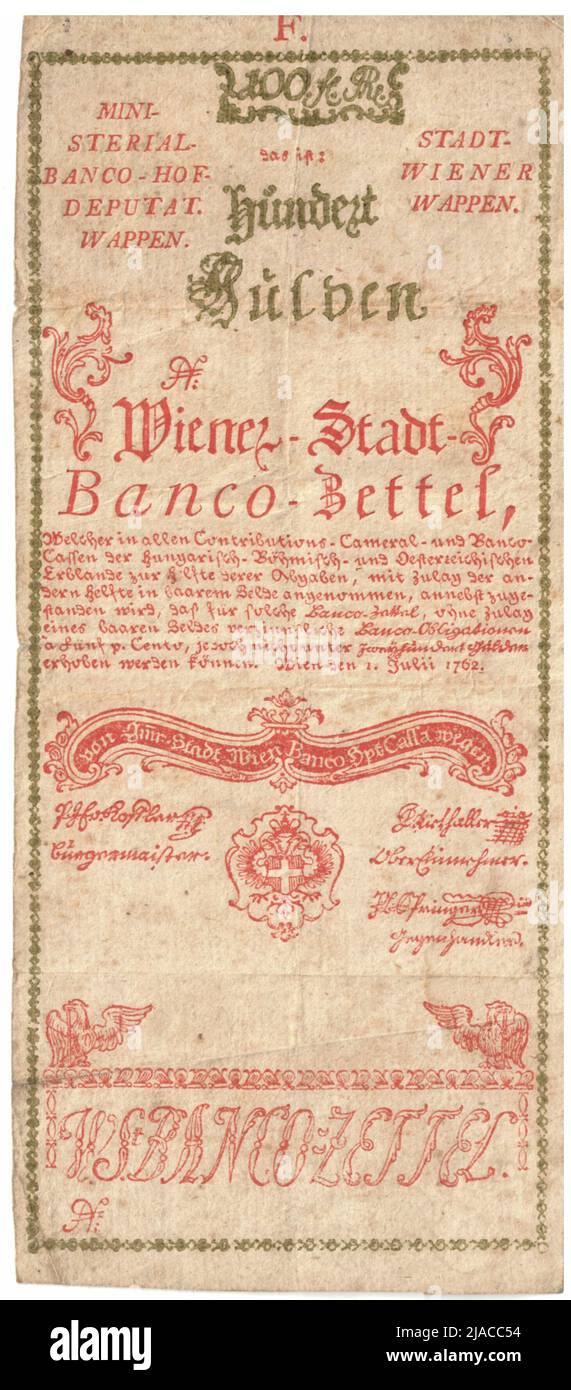 F.
100 fl. Rh.
das ist:
MINI-
STERIAL-
BANCO-HOF-
DEPUTAT.
WAPPEN.
STADT-
WIENER
WAPPEN.
Hundert
Gulden
No:
Wiener-Stadt-
Banco-Zettel,
Welcher in allen Contributions-Cameral-und Banco-
Cassen der Hungarisch-Böhmisch-und Oesterreichischen
Erblande zur Helfte derer Abgaben, mit Zulag der an-
dern Helfte in baarem Gelde angenommen, annebst zuge-
standen wird, das für solche Banco-Zettel, ohne Zulag
eines baaren Geldes verzinnsliche Banco-Obligationen
a fünf p. Cento, jedoch nicht unter zweyhundert Gulden
erhoben werden können. Wien den 1. Julii 1762.
Von Einer Stadt Wien Banco Hpt Cassa wegen
Burgermaister.
Ober Einnehmer.
Gegenhandler.
W.S.BANCO-ZETTEL.
No:
alamy
Image ID: 2JACC54
www.alamy.com